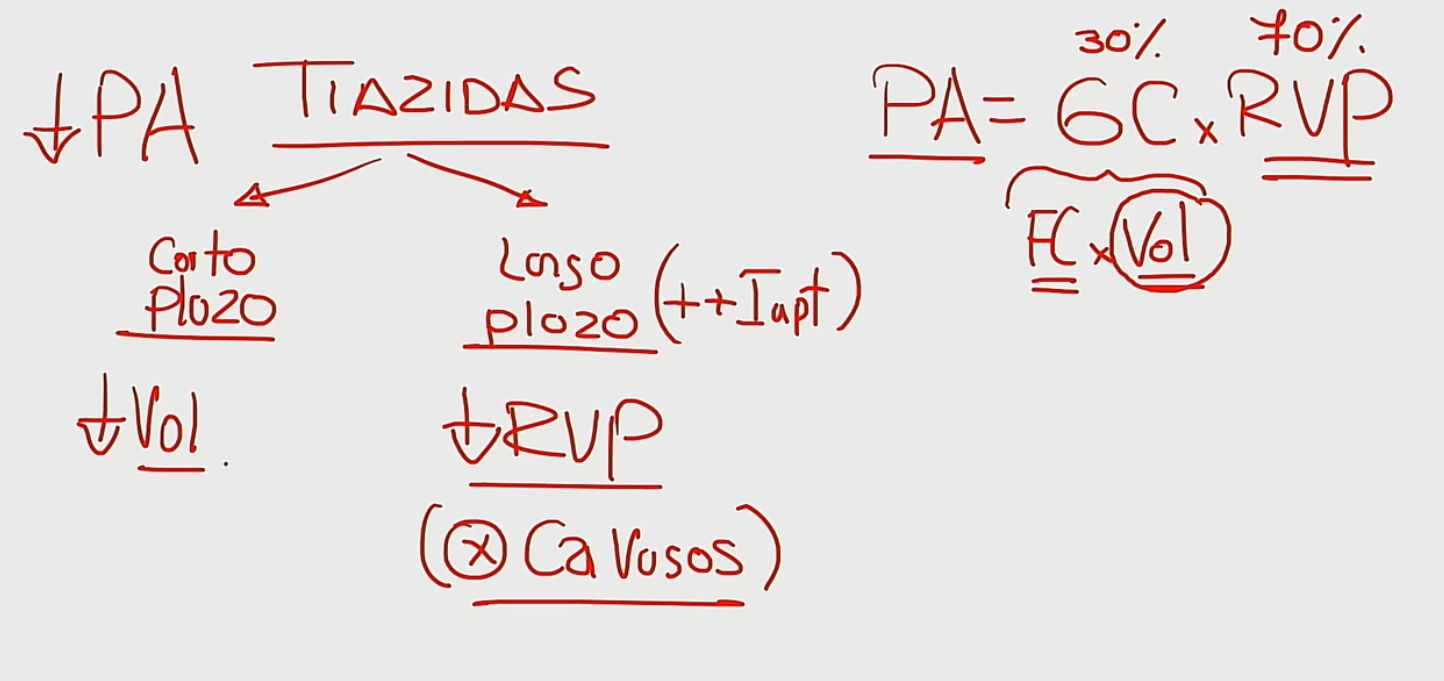 ↓PA TIAZIDAS
Corto
plazo
↓Vol.
Largo
plazo (++Impt)
↓RVP
(ⓧ Ca Vasos)
30% 70%
PA= GC x RVP
FC x Vol